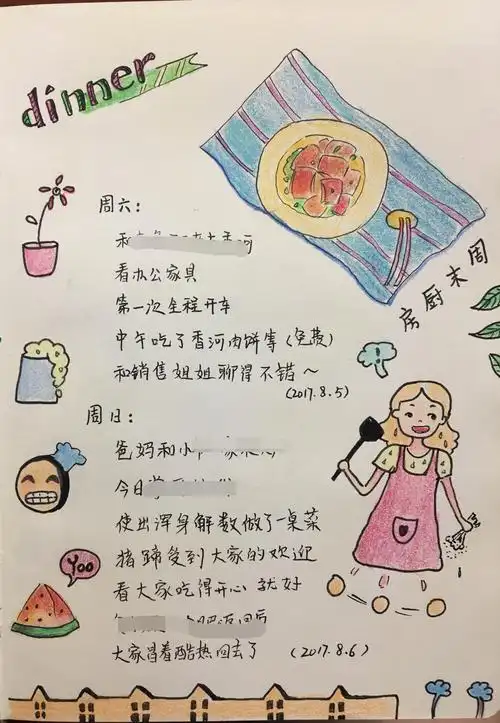 dinner
周六：
看办公家具
第一次全程开车
中午吃了香河肉饼等（免费）
和销售姐姐聊得不错～
（2017.8.5）
周末厨房
周日：
爸妈和小
今日
使出浑身解数做了一桌菜
猪蹄受到大家的欢迎
看大家吃得开心就好
大家冒着酷热回去了 （2017.8.6）
Yoo